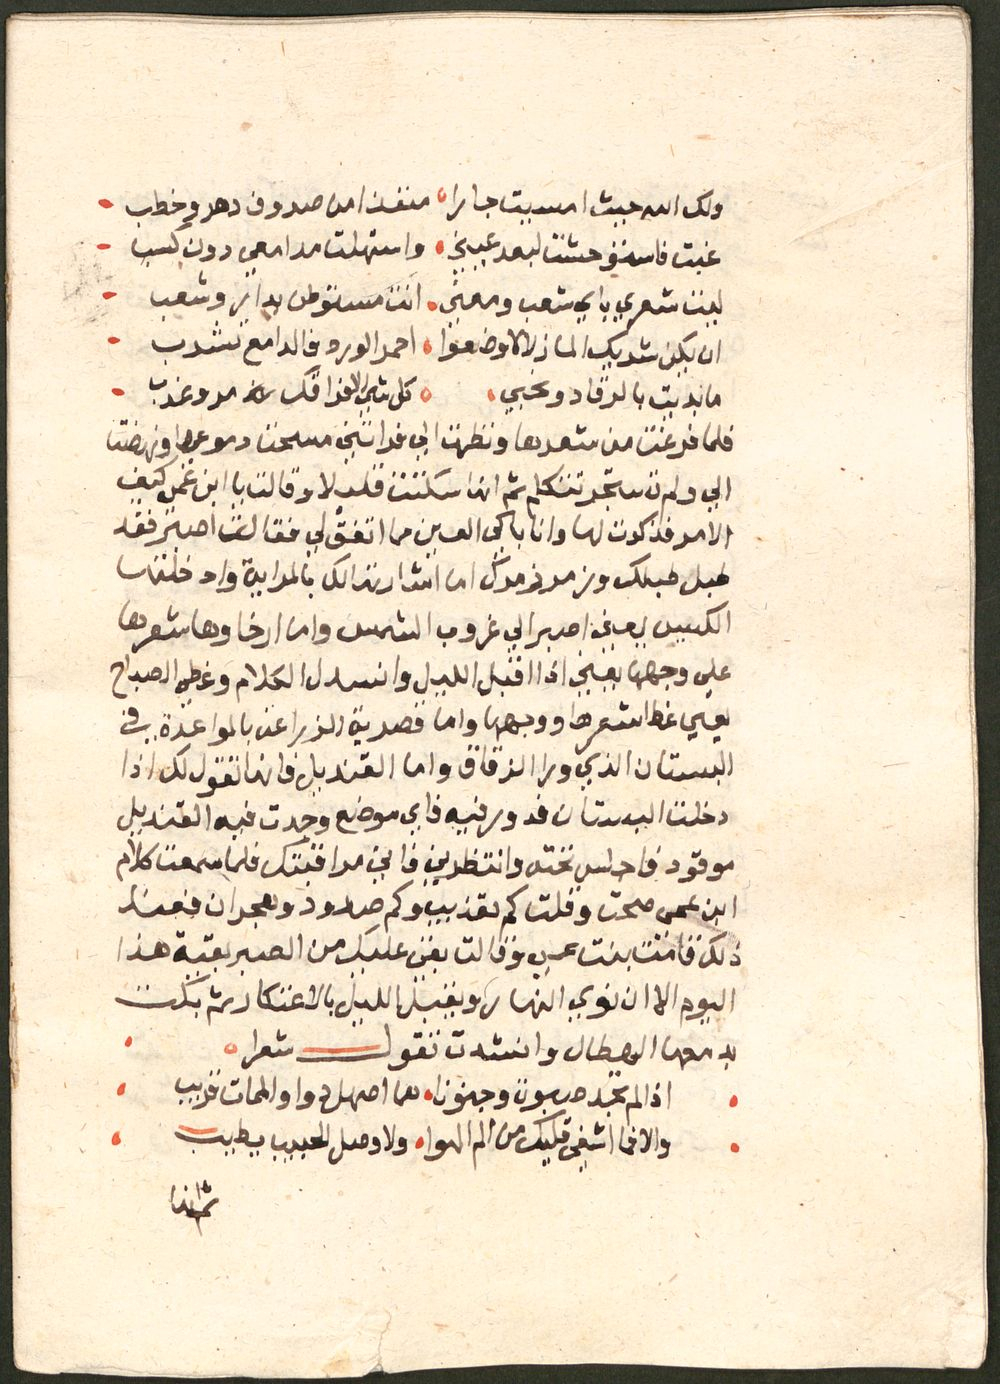 ولك الله حيث امسيت جارا منقذا من صروف دهر وخطب
غبت فاستوحشت لبعد عيني واستهلت مدامعي دون كسب
ليت شعري باي شعب ومغنى انت مستوطن بدار وشعب
ان يكن شربك الماء زلالا احمر الورد فالدامع شرب
ما بديت بالرقاد وبجنبي كل شي الا فراقك عذب
فلما فرغت من شعرها ونظرت الي فراتني مسحت دموعها ونهضت
الي ولم تستجر تتكلم ثم انها سكتت قليلا وقالت يا ابن عمي كيف
الامر فذكرت لها وانا باكي العين مما اتفق لي فقالت اصبر فقد
طبل طبلك وزمر زمرك اما اشارتها لك بالمراية وادخلتها
الكيس يعني اصبر الي غروب الشمس واما ارخاوها شعرها
علي وجهها يعني اذا اقبل الليل وانسدل الظلام وغطي الصباح
يعني غطا شعرها ووجهها واما قصرية الزرع بالمواعدة في
البستان الذي ورا الزقاق واما القنديل فانها تقول لك اذا
دخلت البستان فدور فيه فاي موضع وجدت فيه القنديل
موقود فاجلس تحته وانتظريني فاني مراقبتك فلما سمعت كلام
ابن عمي صحت وقلت كم تعذيب وكم صدود وهجران فعند
ذلك قامت بنت عمي وقالت بقي عليك من الصبر بقية هذا
اليوم الا ان يولي النهار ويقبل الليل بالاعتكار ثم بكت
بدمعها الهطال وانشدت تقول شعرا
اذا لم تجد صبرا وجنونا هما اصل دوا والممات قريب
والا فما اشفي قليبك من الم الهوا ولا وصل الحبيب يطيب
ثم انها